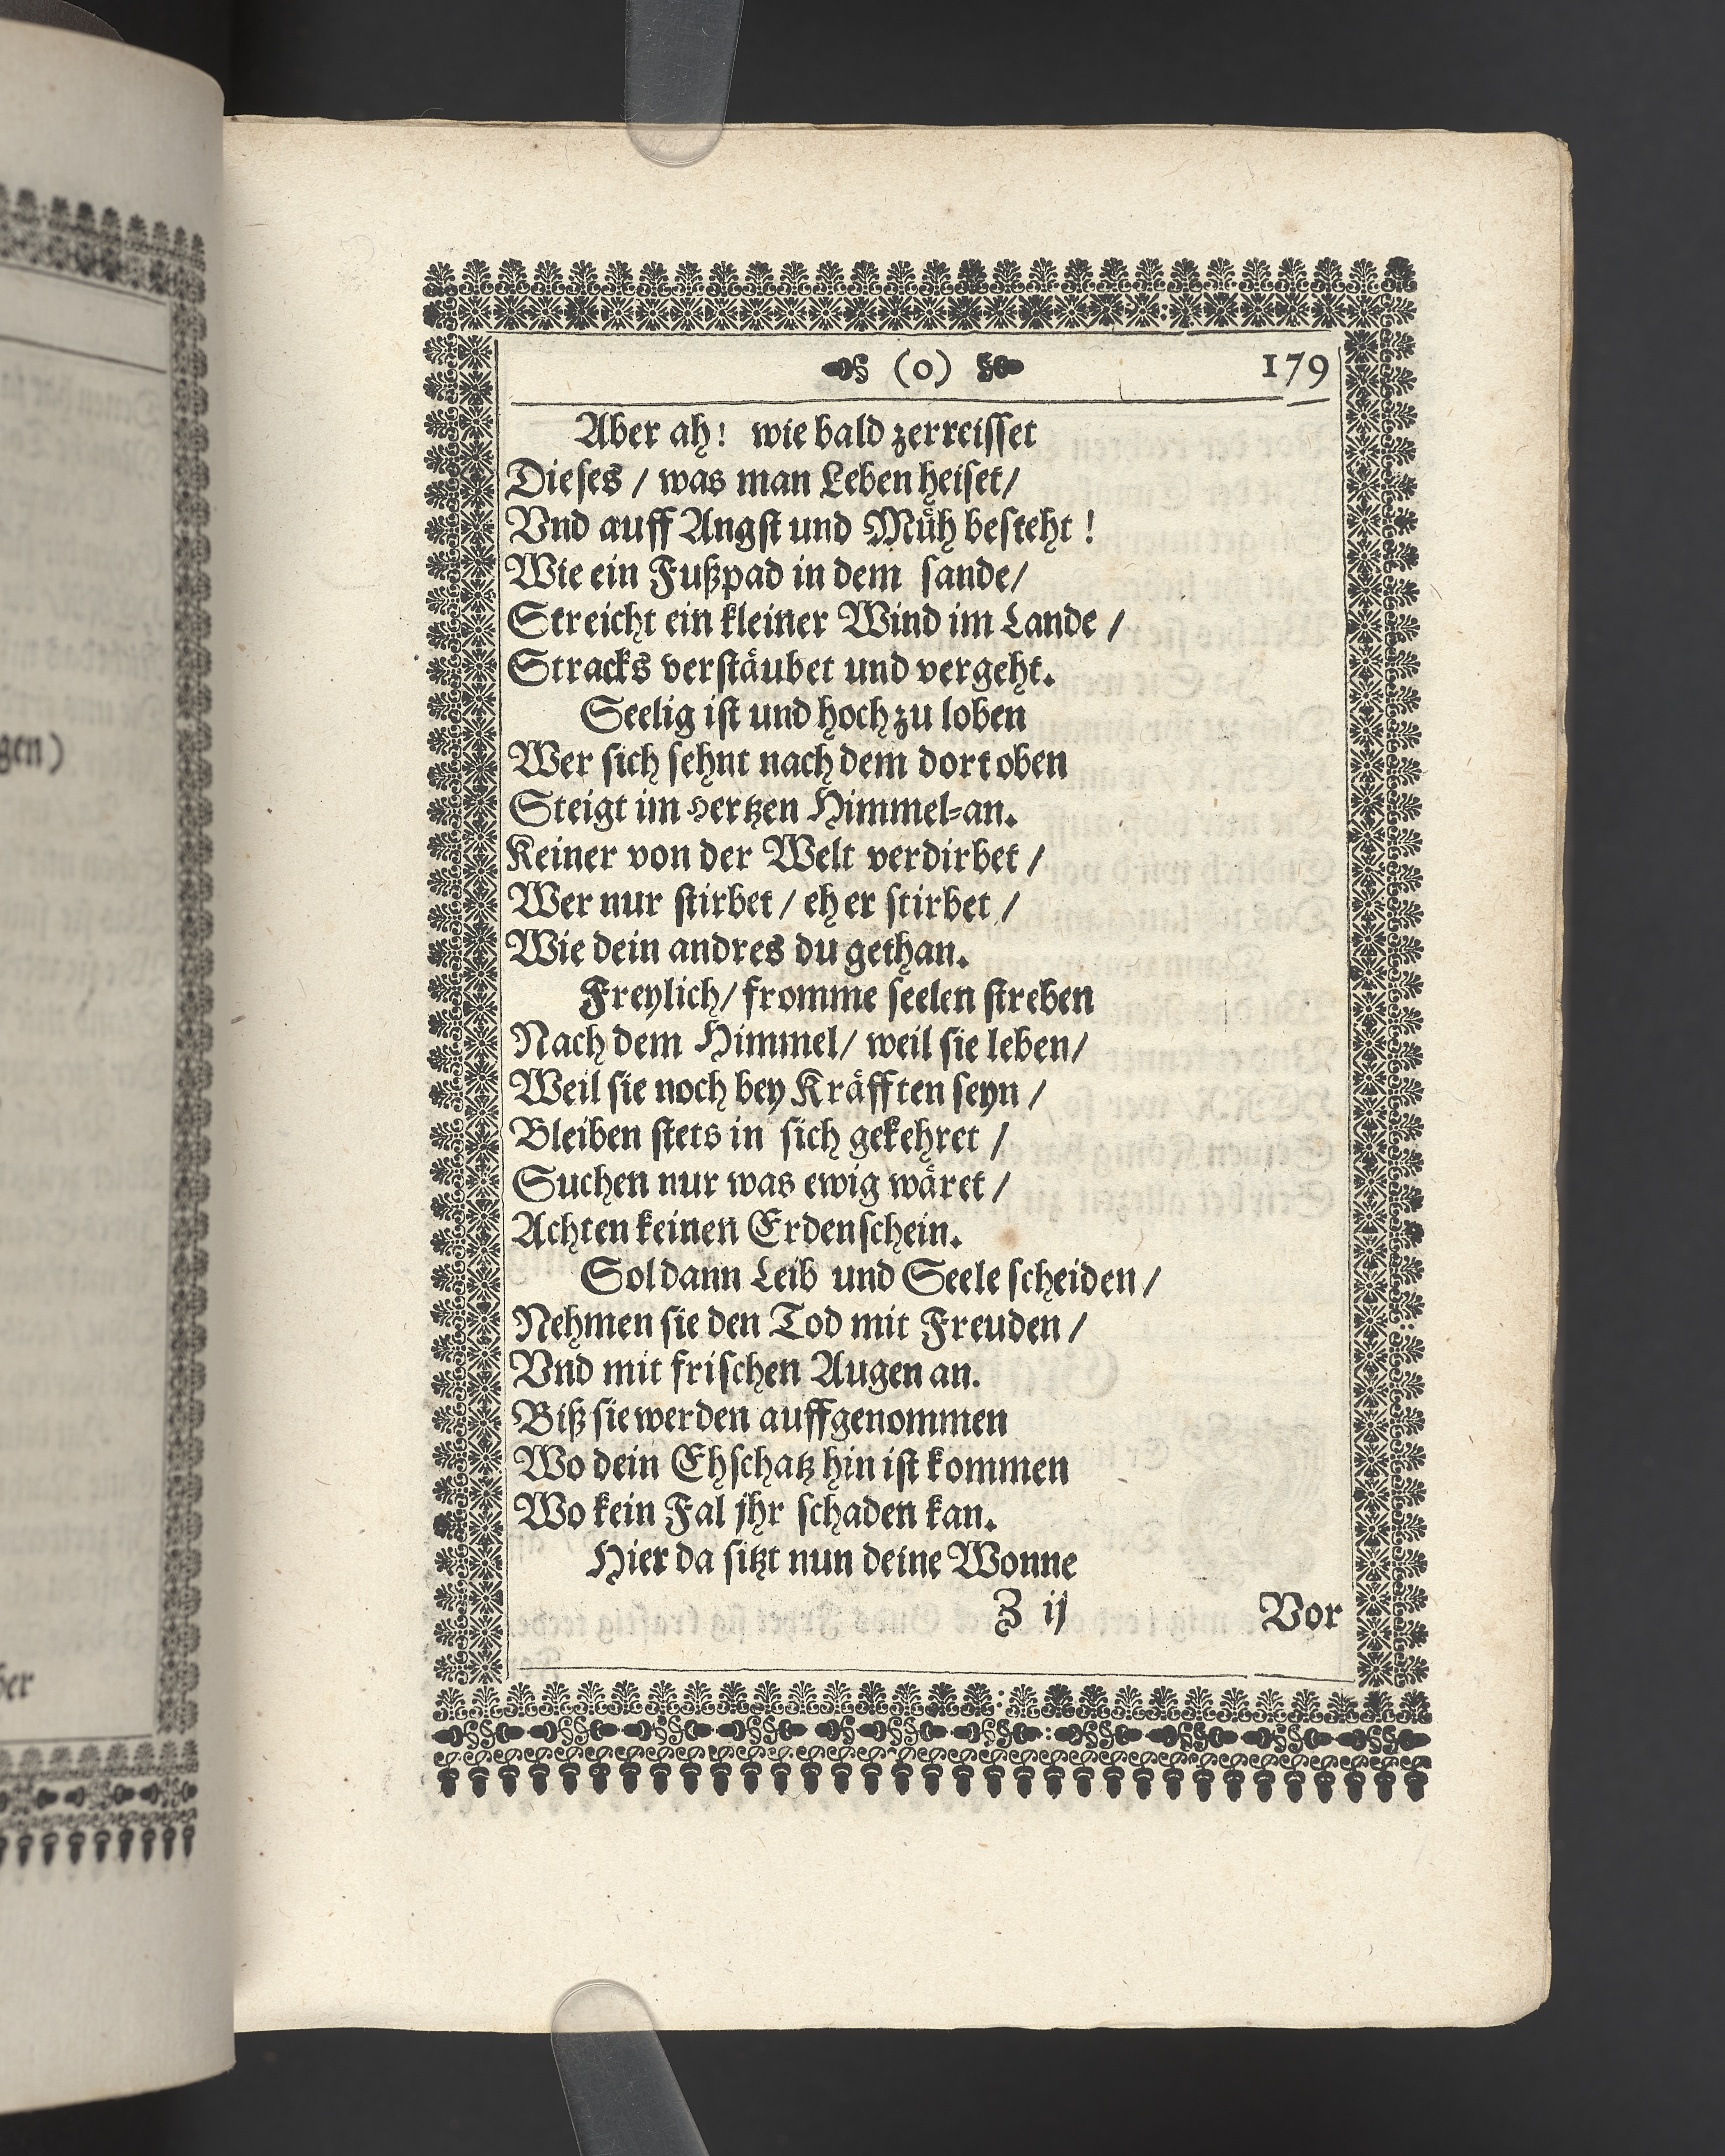 (0) 179
Aber ah! wie bald zerreisset
Dieses / was man Leben heiset/
Vnd auff Angst und Müh besteht !
Wie ein Fußpad in dem sande/
Streicht ein kleiner Wind im Lande /
Stracks verstäubet und vergeht.
Seelig ist und hoch zu loben
Wer sich sehnt nach dem dort oben
Steigt im Hertzen Himmel-an.
Keiner von der Welt verdirbet /
Wer nur stirbet / eh er stirbet /
Wie dein andres du gethan.
Freylich/ fromme seelen streben
Nach dem Himmel/ weil sie leben/
Weil sie noch bey Kräfften seyn /
Bleiben stets in sich gekehret /
Suchen nur was ewig wäret /
Achten keinen Erdenschein.
Sol dann Leib und Seele scheiden /
Nehmen sie den Tod mit Freuden /
Vnd mit frischen Augen an.
Biß sie werden auffgenommen
Wo dein Ehschatz hin ist kommen
Wo kein Fal jhr schaden kan.
Hier da sitzt nun deine Wonne
Z ij Vor